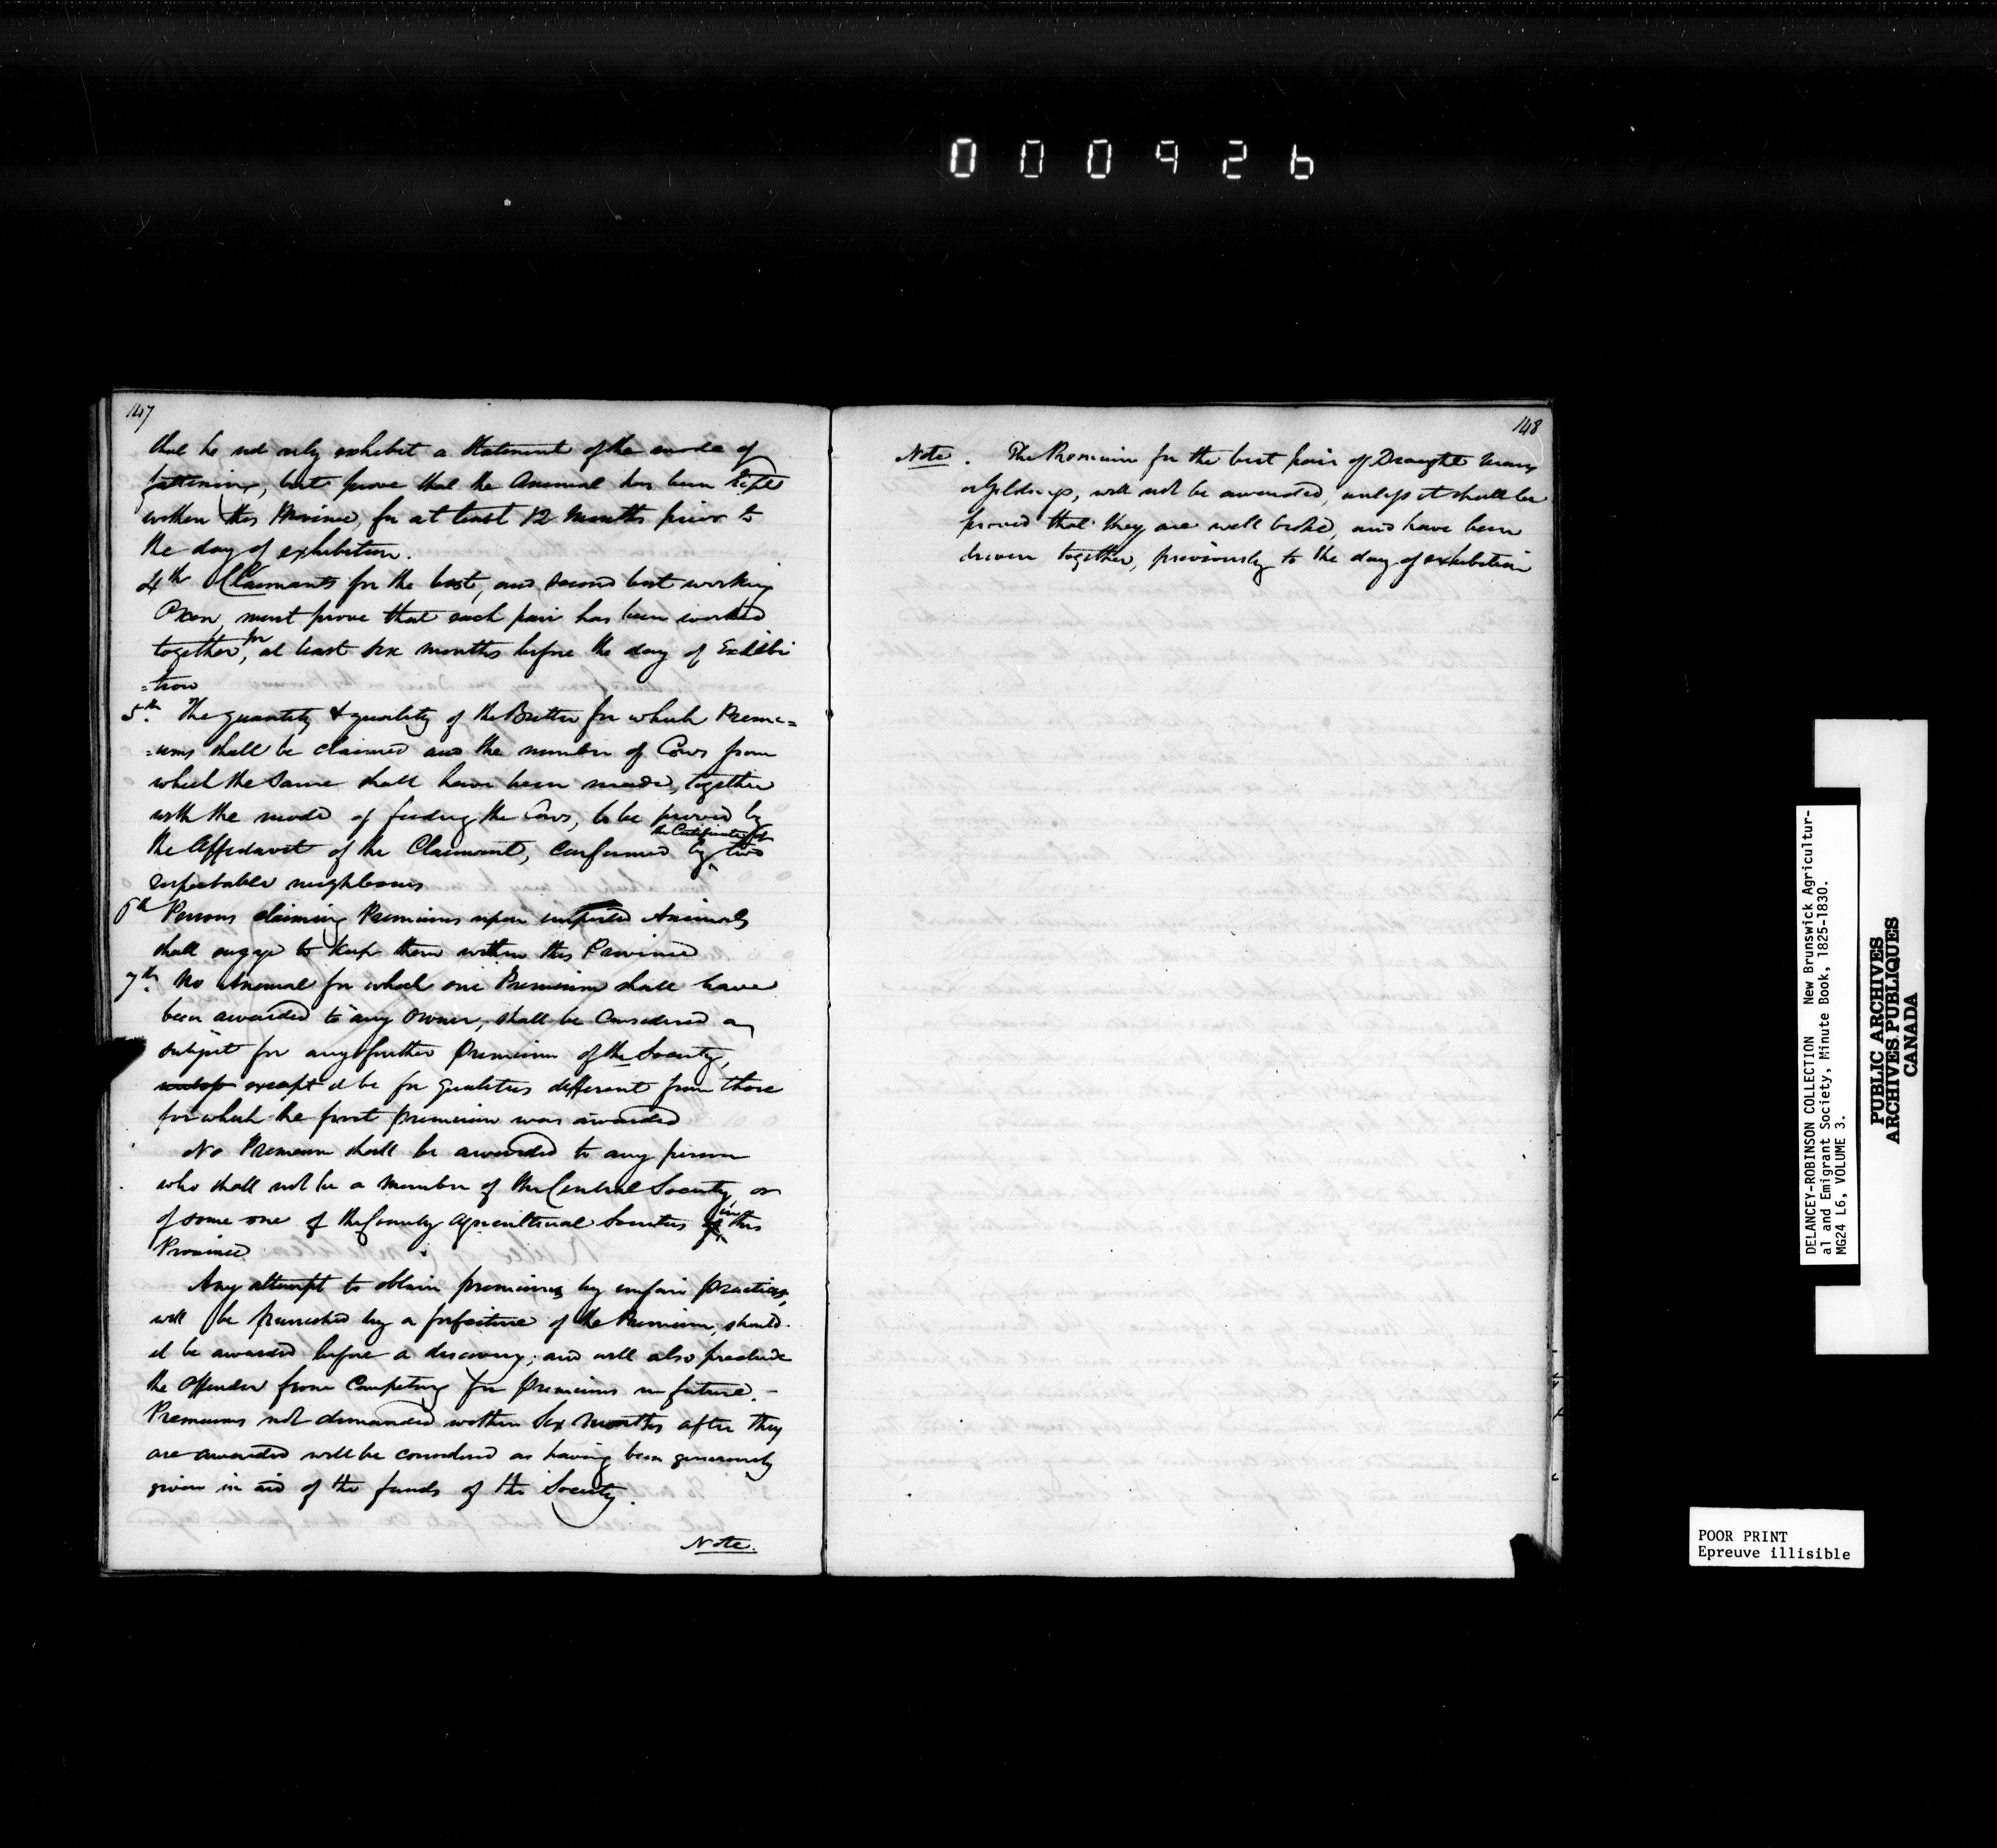 000926
147
that he not only exhibit a Statement of the mode of
fattening, but prove that the Animal has been kept
within this Province, for at least 12 Months prior to
the day of exhibition.
4th Claimants for the best, and second best working
Oxen, must prove that each pair has been worked
together, for at least six months before the day of Exhibi
=tion
5th. The quantity & quality of the Butter for which Premi=
=ums shall be claimed and the number of Cows from
which the Same shall have been made, together
with the mode of feeding the Cows, to be proved by
the Affidavit of the Claimant, confirmed by the Certificate of two
respectable neighbours
6th Persons claiming Premiums upon imported Animals
shall engage to keep them within this Province
7th. No Animal for which one Premium shall have
been awarded to any owner, shall be Considered a
subject for any further Premium of the Society,
unless except it be for qualities different from those
for which the first premium was awarded
No Premium shall be awarded to any person
who shall not be a Member of the Central Society, or
of some one of the County Agricultural Societies of in this
Province
Any attempt to obtain premiums by unfair practices,
will be punished by a forfeiture of the Premium, should
it be awarded before a discovery; and will also preclude
the Offender from Competing for premiums in future. -
Premiums not demanded within Six Months after they
are awarded will be considered as having been generously
given in aid of the funds of the Society.
Note.
148
Note. The Premium for the best pair of Draught Mares
or Geldings, will not be awarded, unless it shall be
proved that they are well broke, and have been
driven together, previously to the day of exhibition
DELANCEY-ROBINSON COLLECTION New Brunswick Agricultur-
al and Emigrant Society, Minute Book, 1825-1830.
MG24 L6, VOLUME 3.
PUBLIC ARCHIVES
ARCHIVES PUBLIQUES
CANADA
POOR PRINT
Epreuve illisible